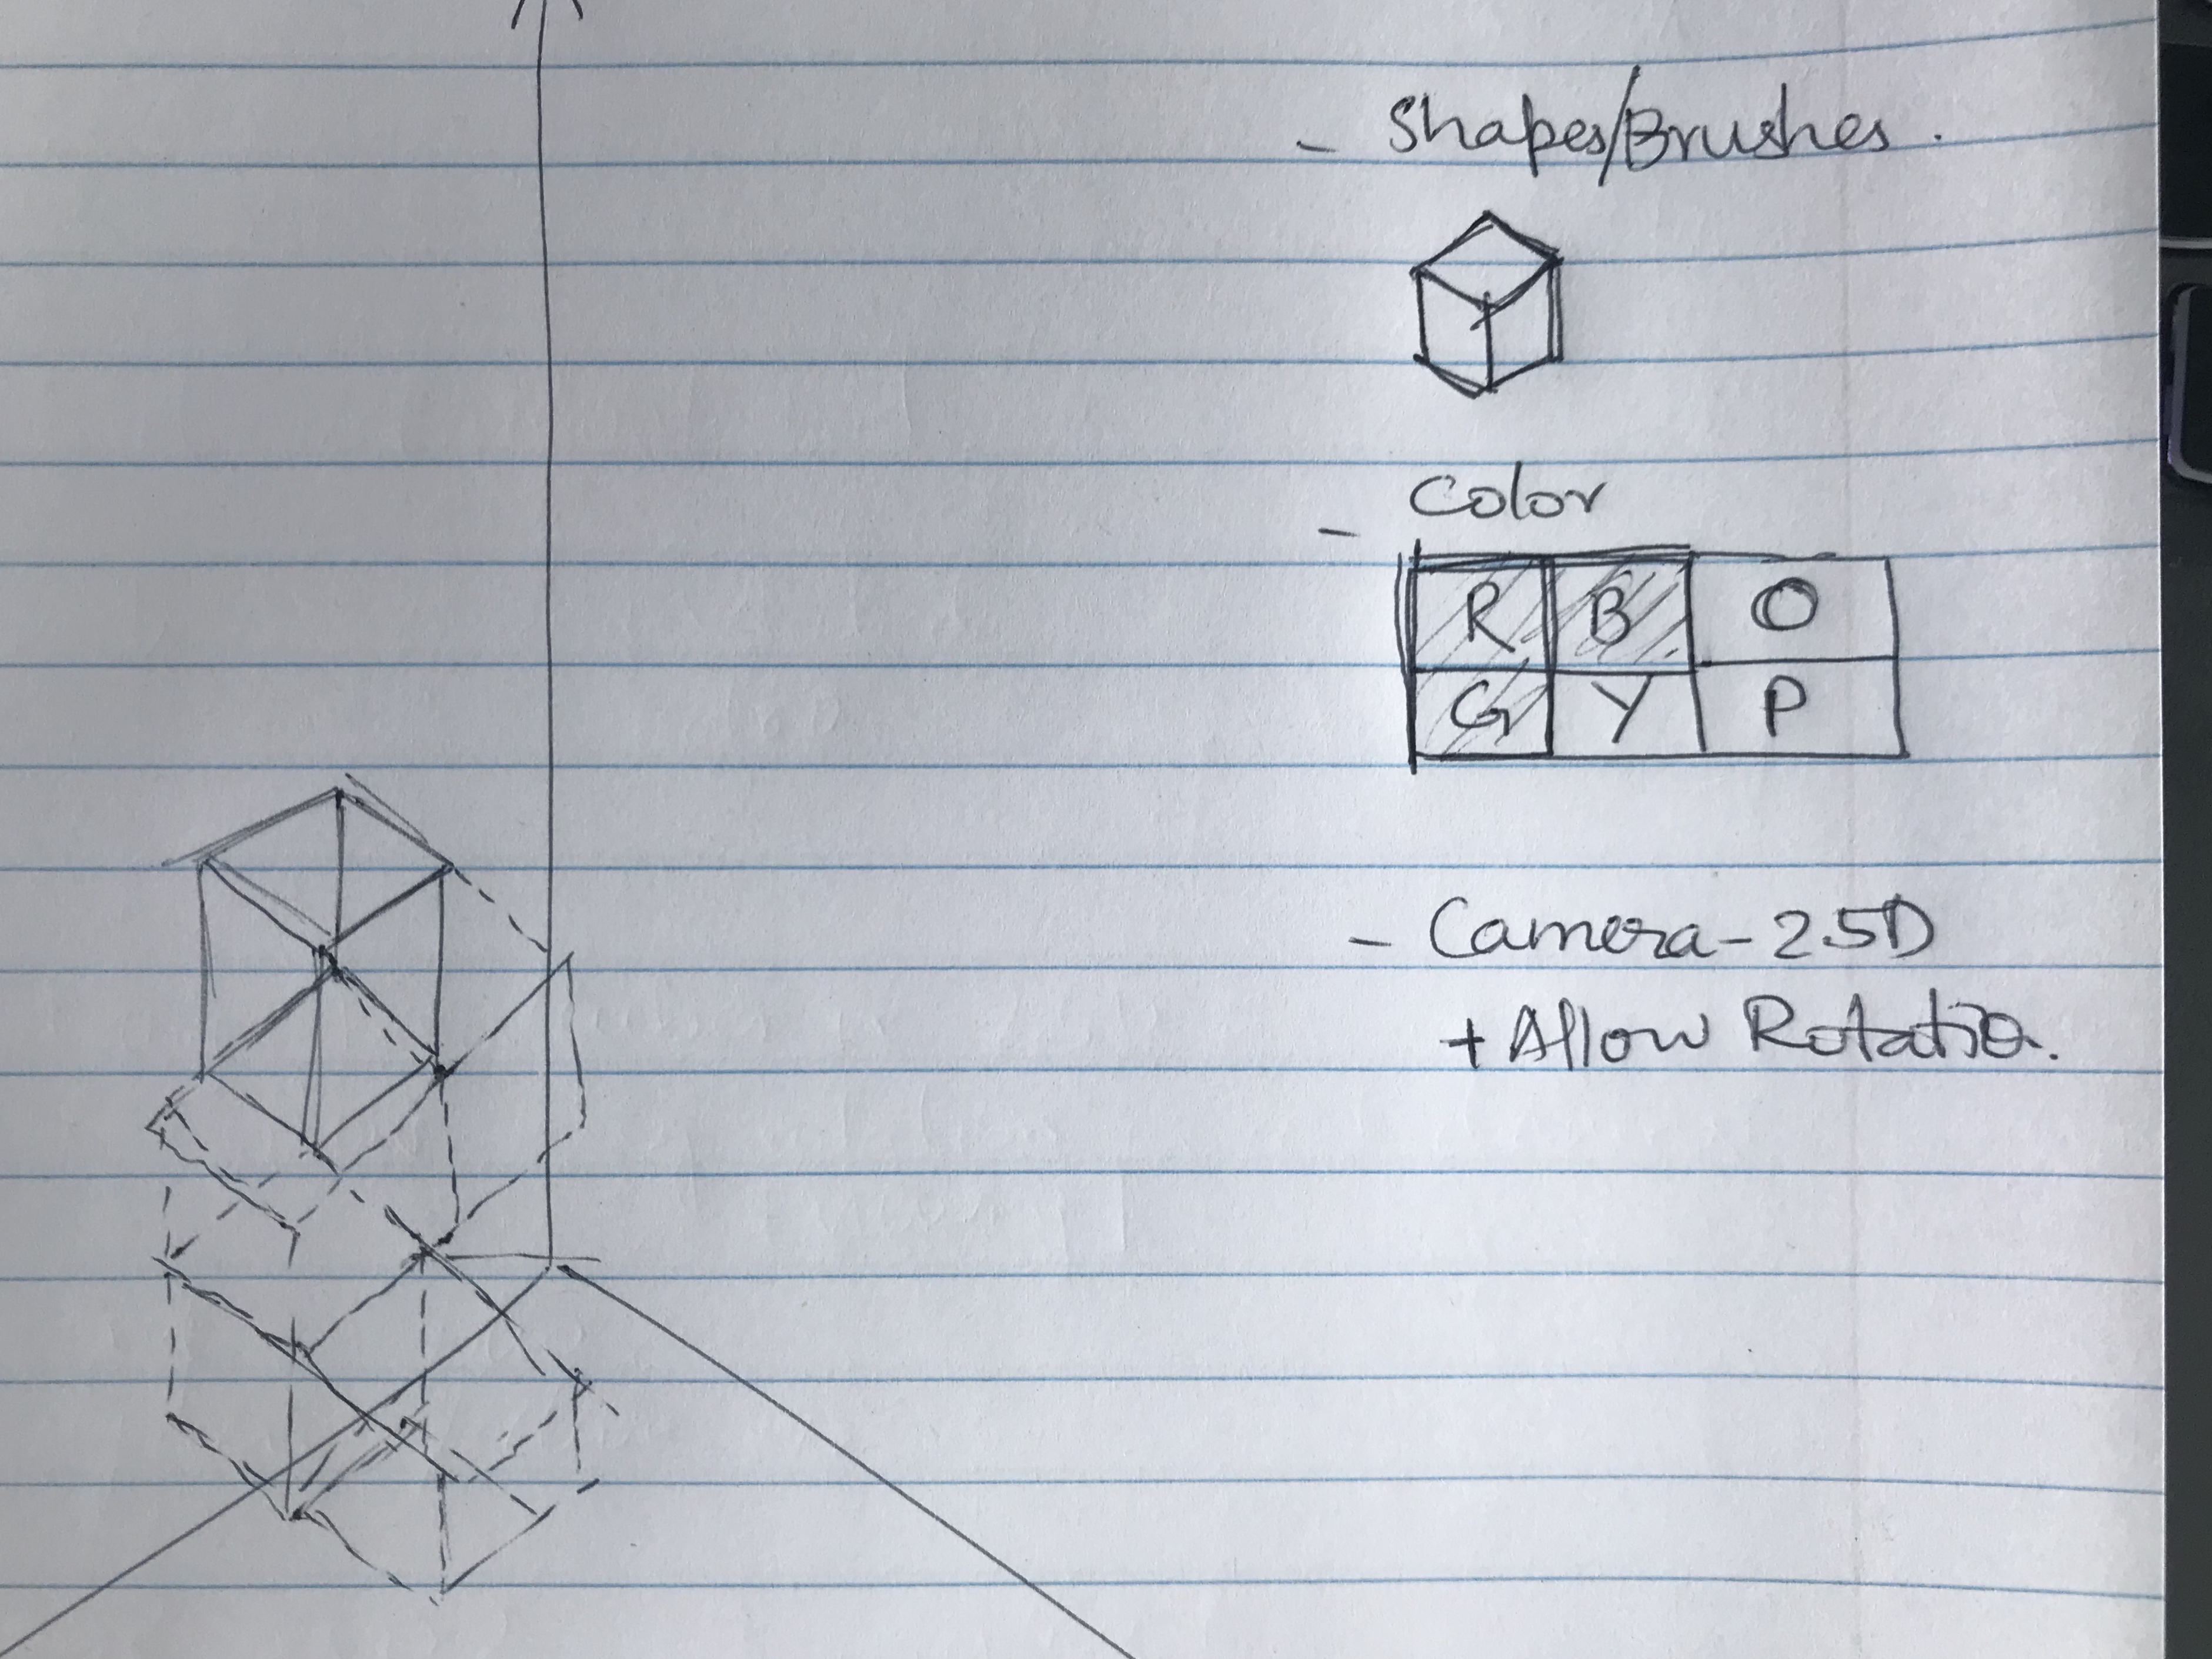 - Shapes/Brushes.
- Color
R B O
G Y P
- Camera-2.5D
+ Allow Rotation.